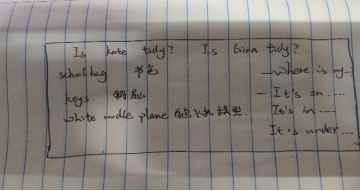 Is kate tidy? Is Gina tidy?
scholbag 书包
—where is my
keys 钥匙
— It's on ......
white modle plane 白色飞机模型
It's in .....
It's under ...